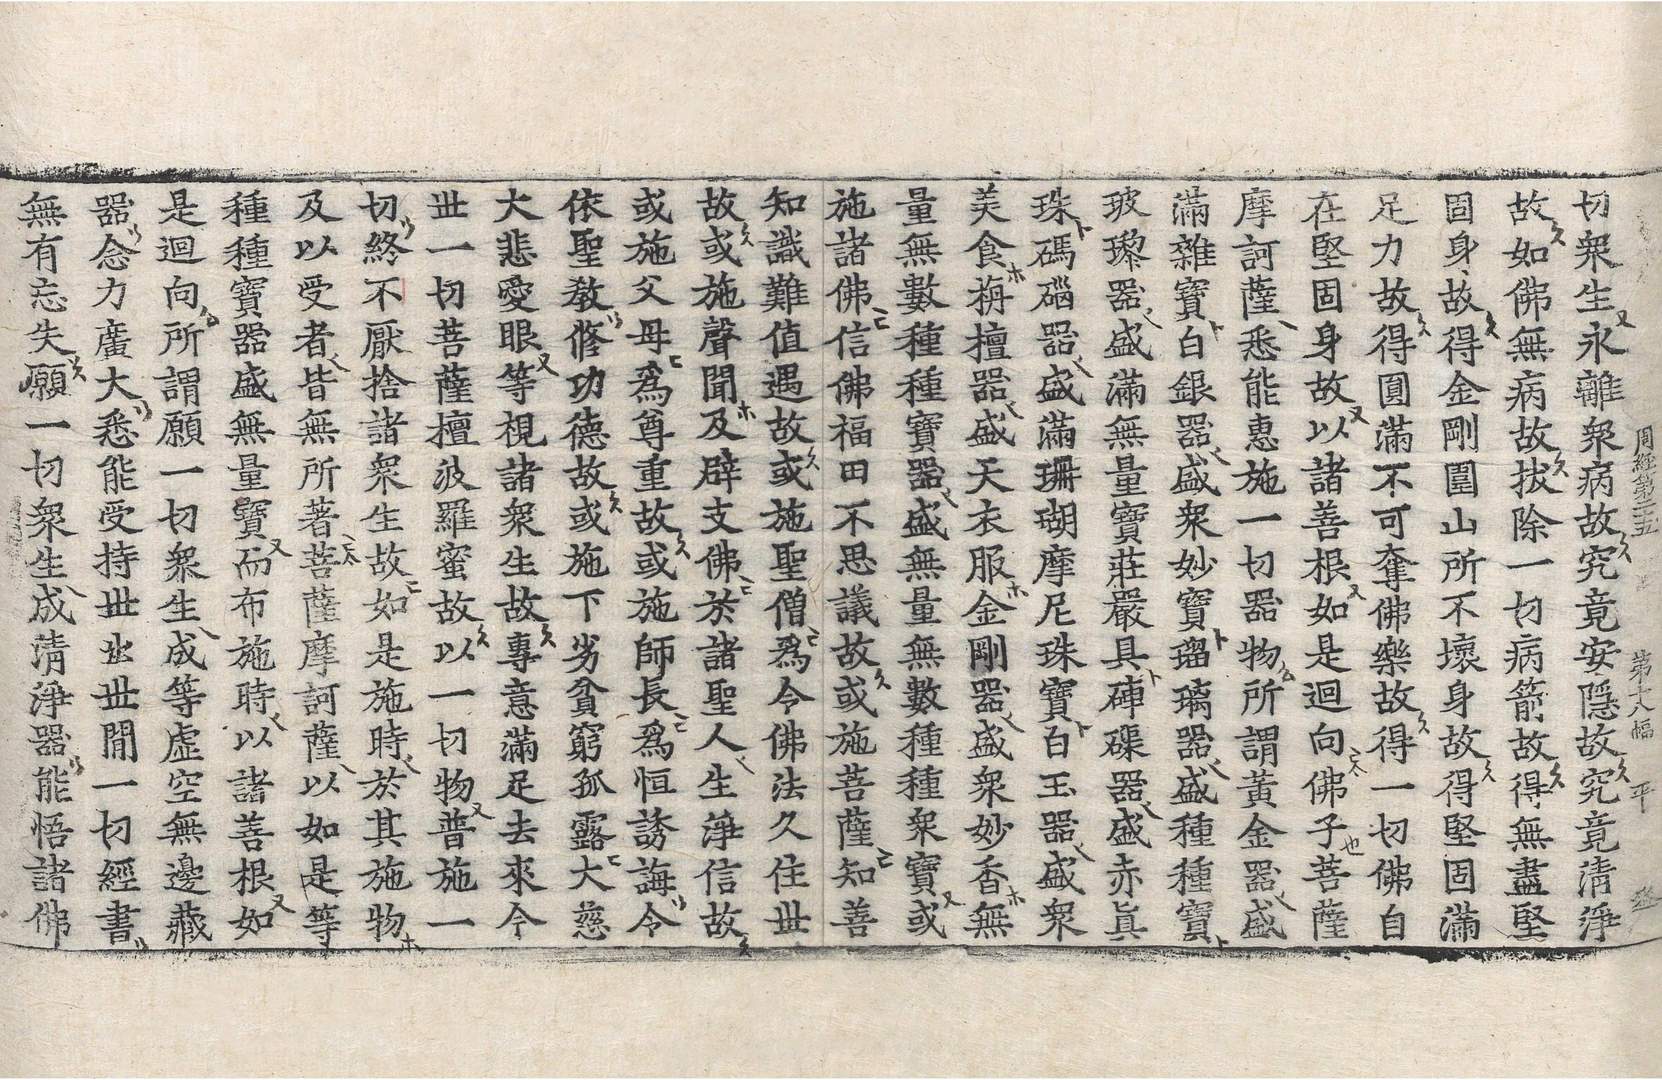 周経第二五 第十八幅 平
切衆生永離衆病故究竟安隱故究竟清淨
故如佛無病故拔除一切病箭故得無盡堅
固身故得金剛圍山所不壞身故得堅固滿
足力故得圓滿不可奪佛樂故得一切佛自
在堅固身故以諸善根如是迴向佛子菩薩
摩訶薩悉能惠施一切器物所謂黃金器盛
滿雜寶白銀器盛衆妙寶瑠璃器盛種種寶
玻瓈器盛滿無量寶莊嚴具硨磲器盛赤真
珠碼碯器盛滿珊瑚摩尼珠寶白玉器盛衆
美食栴檀器盛天衣服金剛器盛衆妙香無
量無數種種寶器盛無量無數種種衆寶或
施諸佛信佛福田不思議故或施菩薩知善
知識難值遇故或施聖僧為令佛法久住世
故或施聲聞及辟支佛於諸聖人生淨信故
或施父母為尊重故或施師長為恒誘誨令
依聖教修功德故或施下劣貧窮孤露大慈
大悲愛眼等視諸衆生故專意滿足去來今
世一切菩薩檀波羅蜜故以一切物普施一
切終不厭捨諸衆生故如是施時於其施物
及以受者皆無所著菩薩摩訶薩以如是等
種種寶器盛無量寶而布施時以諸善根如
是迴向所謂願一切衆生成等虛空無邊藏
器念力廣大悉能受持世出世間一切經書
無有忘失願一切衆生成清淨器能悟諸佛